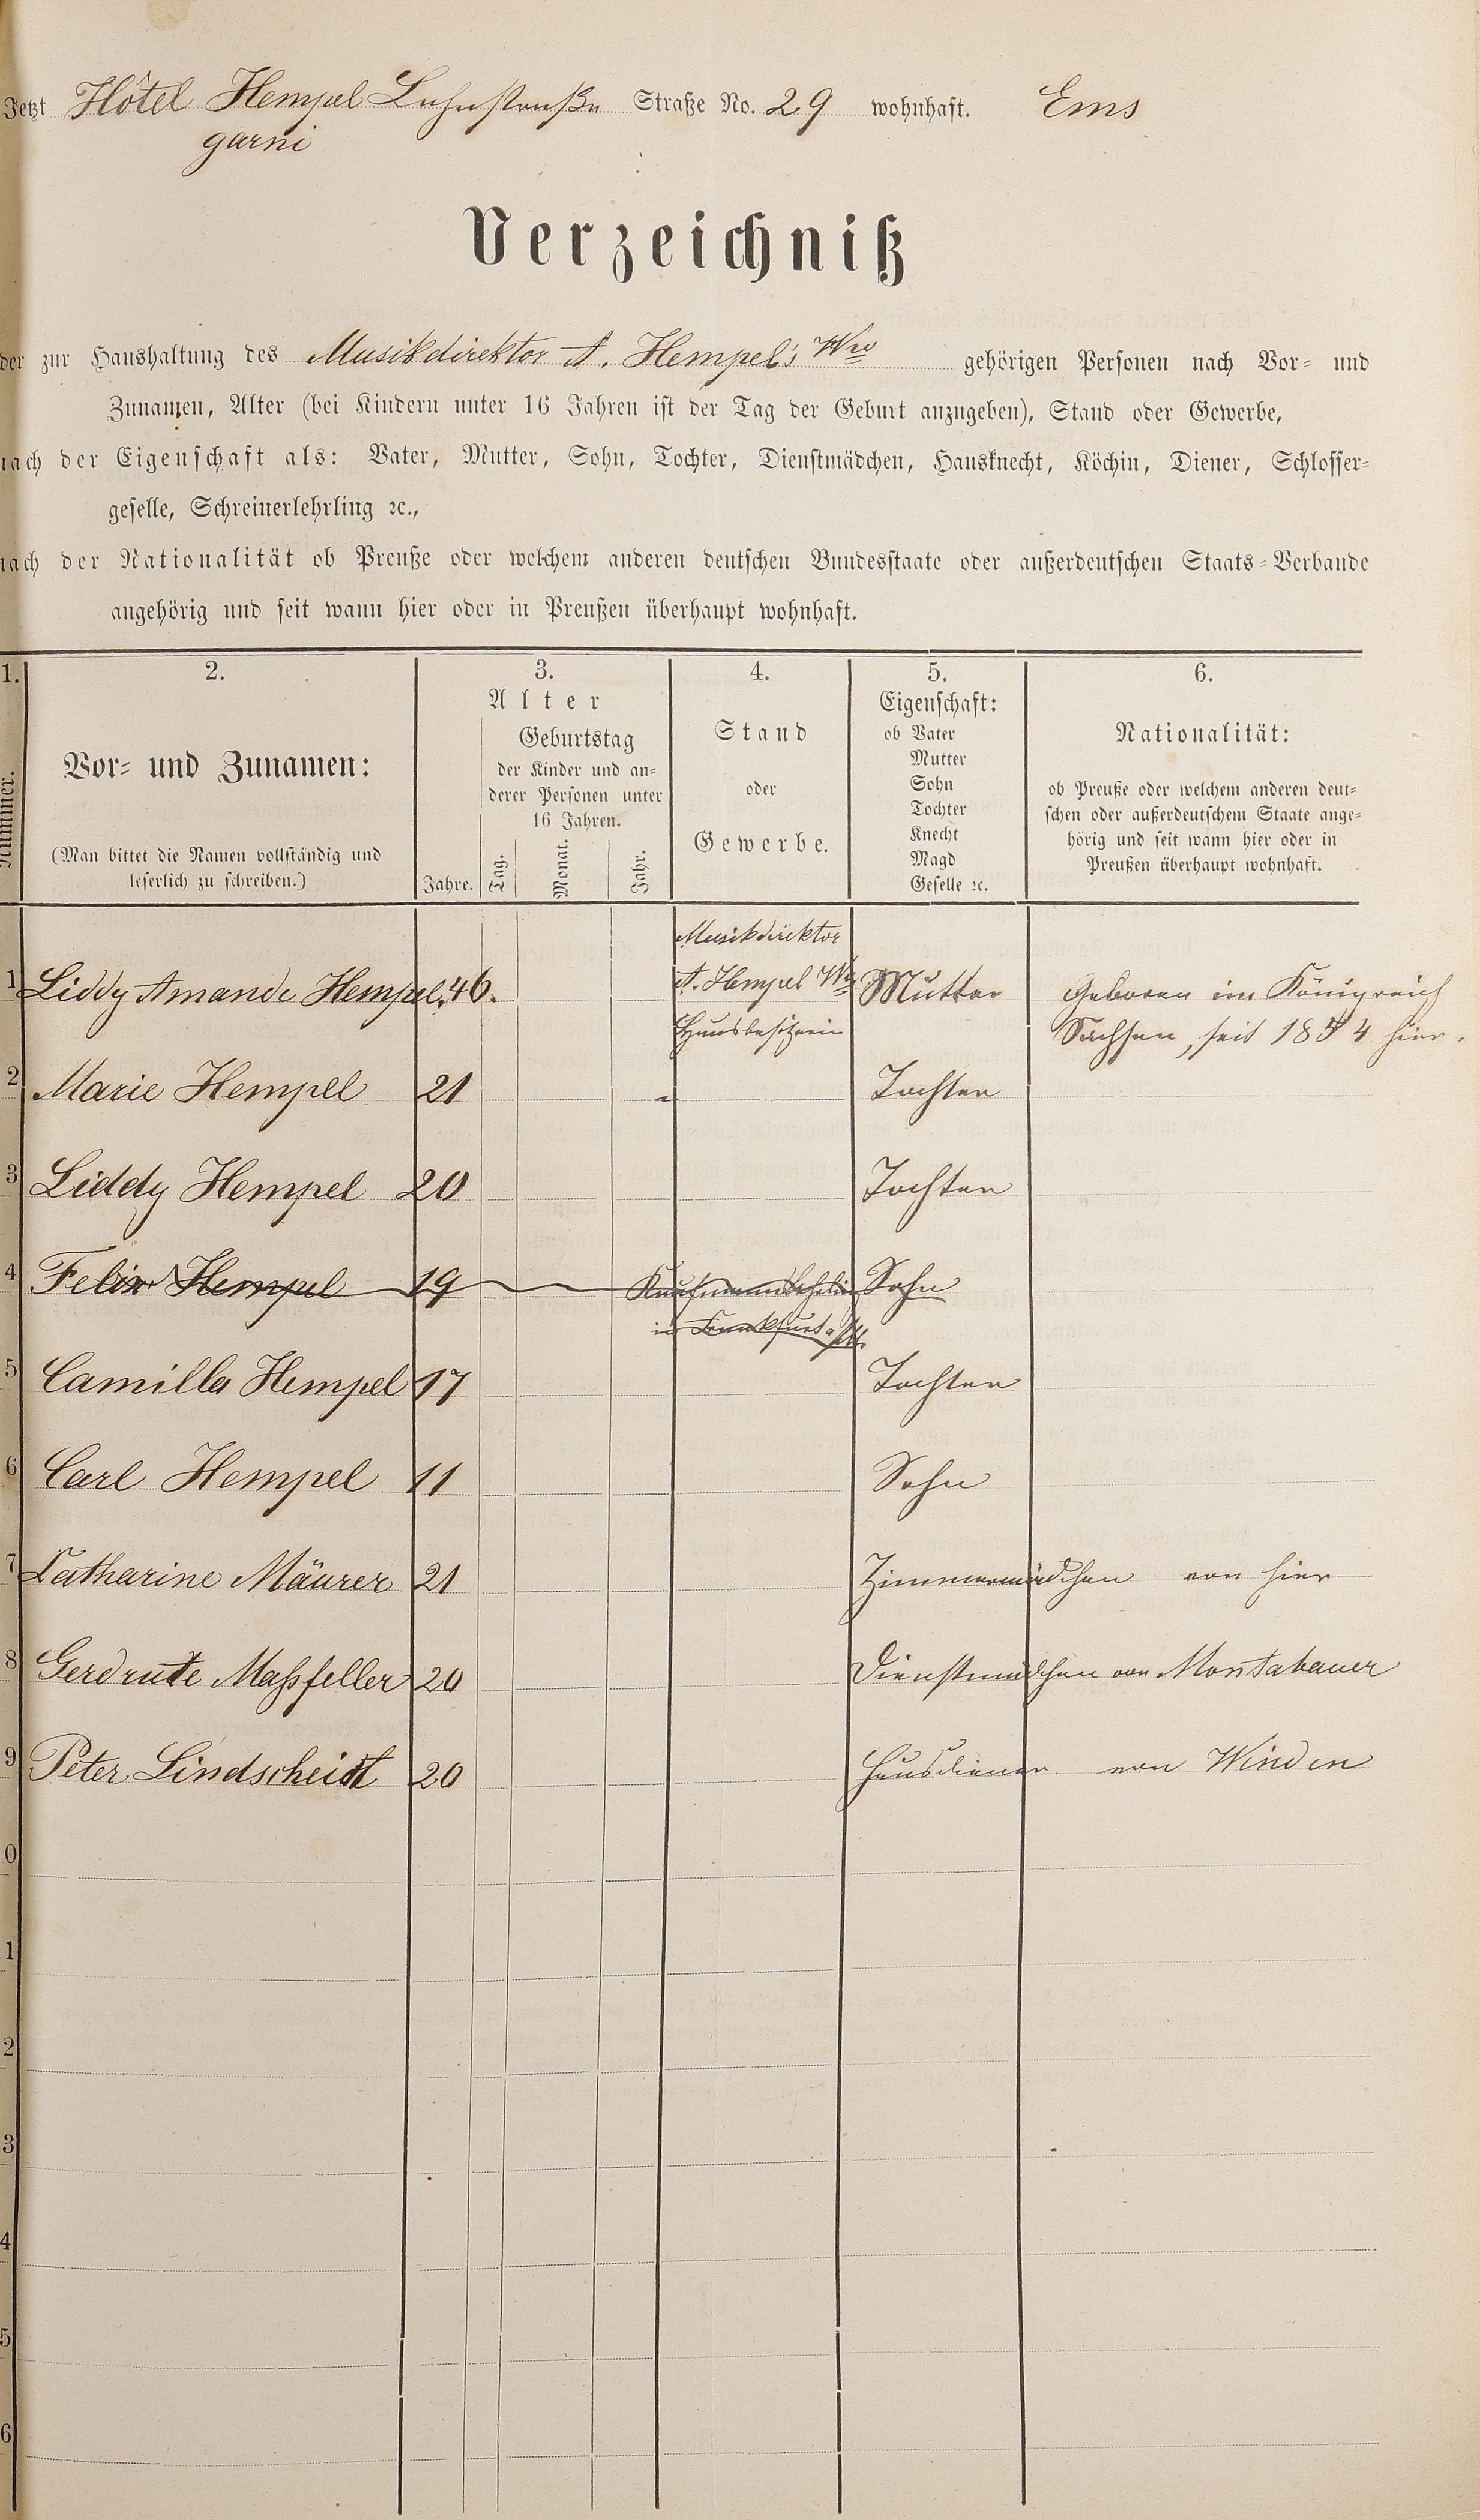 Jetzt Hôtel Hempel Lahnstraße Straße No. 29 wohnhaft. Ems
garni
Verzeichniß
der zur Haushaltung des Musikdirektor A. Hempel's Ww gehörigen Personen nach Vor- und
Zunamen, Alter (bei Kindern unter 16 Jahren ist der Tag der Geburt anzugeben), Stand oder Gewerbe,
nach der Eigenschaft als: Vater, Mutter, Sohn, Tochter, Dienstmädchen, Hausknecht, Köchin, Diener, Schlosser-
geselle, Schreinerlehrling ꝛc.,
nach der Nationalität ob Preuße oder welchem anderen deutschen Bundesstaate oder außerdeutschen Staats-Verbande
angehörig und seit wann hier oder in Preußen überhaupt wohnhaft.
1.
Nummer.
2.
Vor- und Zunamen:
(Man bittet die Namen vollständig und
leserlich zu schreiben.)
3.
Alter
Jahre.
Geburtstag
der Kinder und an-
derer Personen unter
16 Jahren.
Tag. Monat. Jahr.
4.
Stand
oder
Gewerbe.
5.
Eigenschaft:
ob Vater
Mutter
Sohn
Tochter
Knecht
Magd
Geselle ꝛc.
6.
Nationalität:
ob Preuße oder welchem anderen deut-
schen oder außerdeutschem Staate ange-
hörig und seit wann hier oder in
Preußen überhaupt wohnhaft.
Musikdirektor
1 Liddy Amande Hempel. 46. A. Hempel Ww Mutter Geboren im Königreich
Hausbesitzerin Sachsen, seit 1854 hier.
2 Marie Hempel 21 " Tochter
3 Liddy Hempel 20 Tochter
4 Felix Hempel 19 Kaufmannslehrling Sohn
in Frankfurt a/M.
5 Camilla Hempel 17 Tochter
6 Carl Hempel 11 Sohn
7 Catharine Mäurer 21 Zimmermädchen von hier
8 Gerdrute Maßfeller 20 Dienstmädchen von Montabauer
9 Peter Lindscheidt 20 Hausdiener von Winden
0
1
2
3
4
5
6